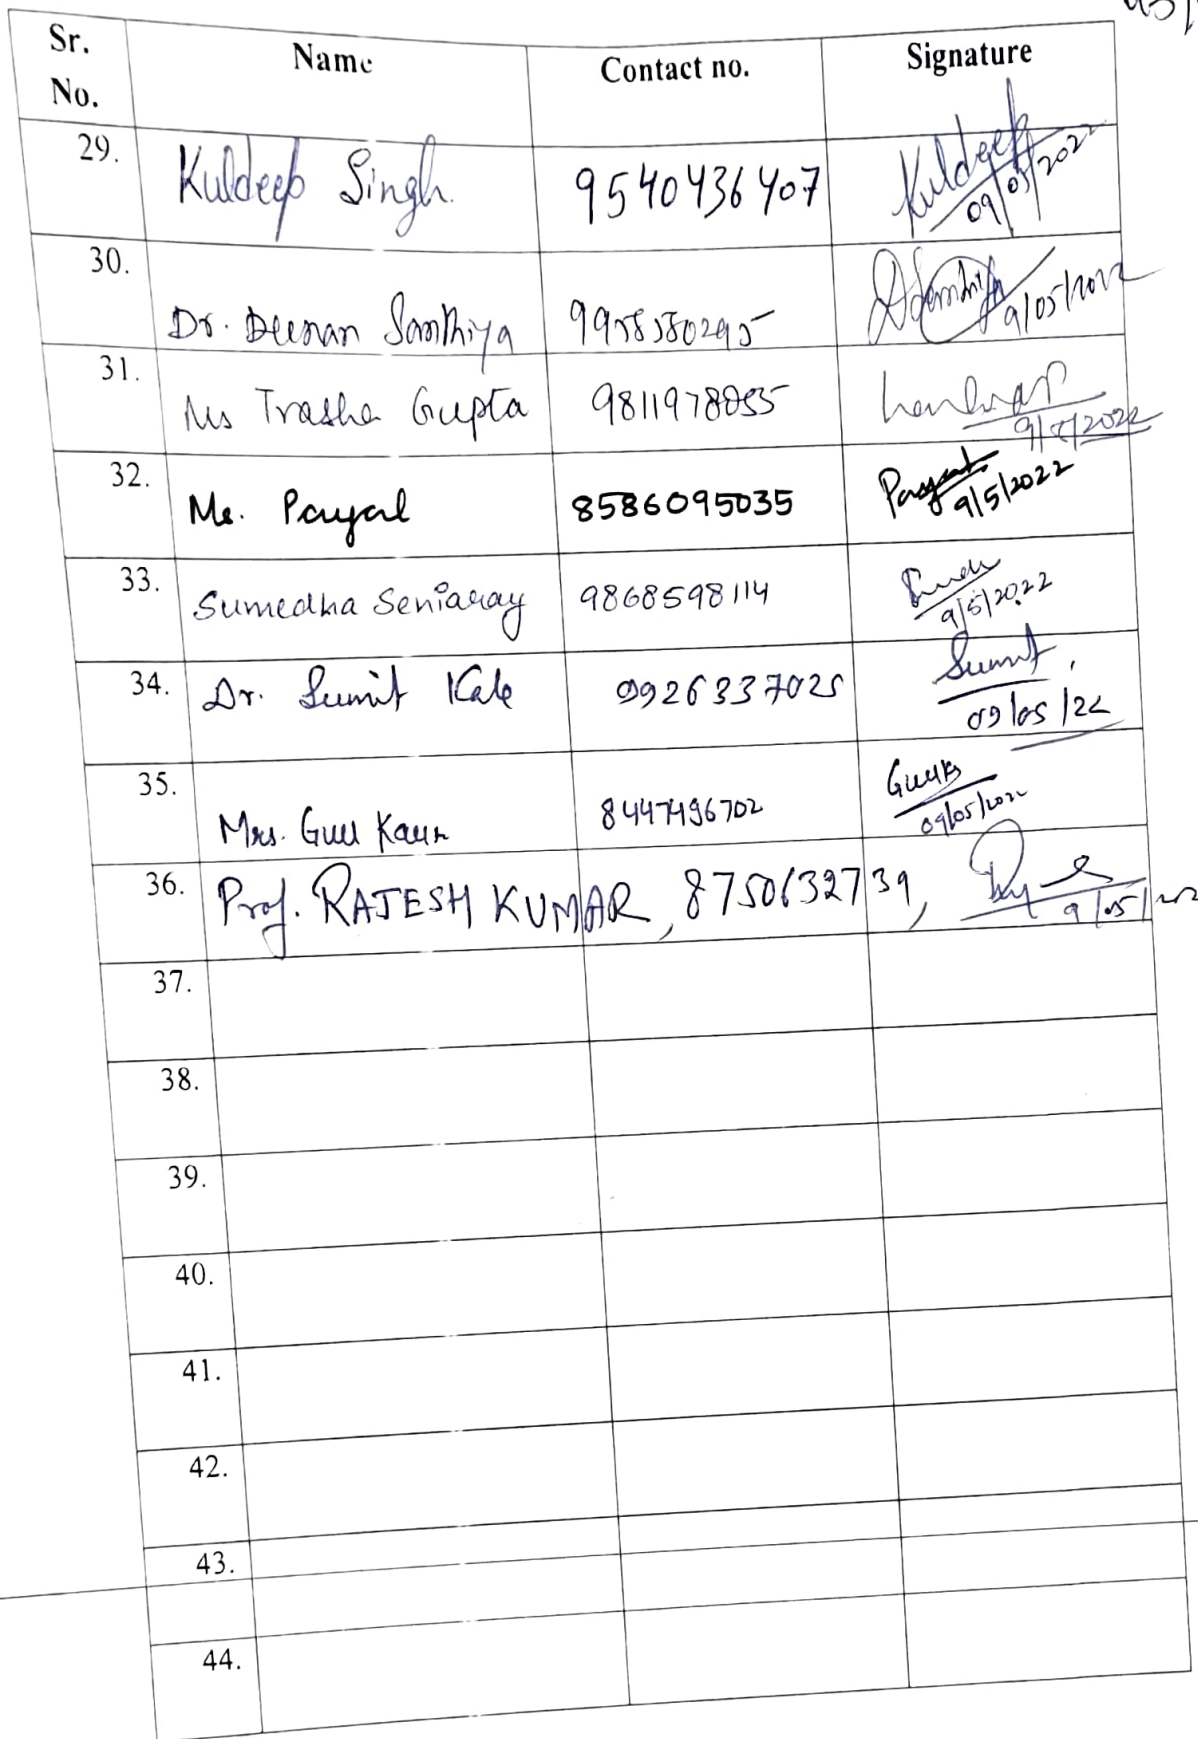 Sr. No. Name Contact no. Signature
29. Kuldeep Singh. 9540436407 Kuldeep 09/05/202
30. Dr. Deenan Santhiya 9958580295 9/05/2022
31. Ms Trasha Gupta 9811978055 9/5/2022
32. Ms. Payal 8586095035 Payal 9/5/2022
33. Sumedha Seniaray 9868598114 9/5/2022
34. Dr. Sumit Kale 9926337025 Sumit, 09/05/22
35. Mrs. Gull Kaur 8447496702 09/05/2022
36. Prof. RAJESH KUMAR, 8750632739, 9/05/202
37.
38.
39.
40.
41.
42.
43.
44.